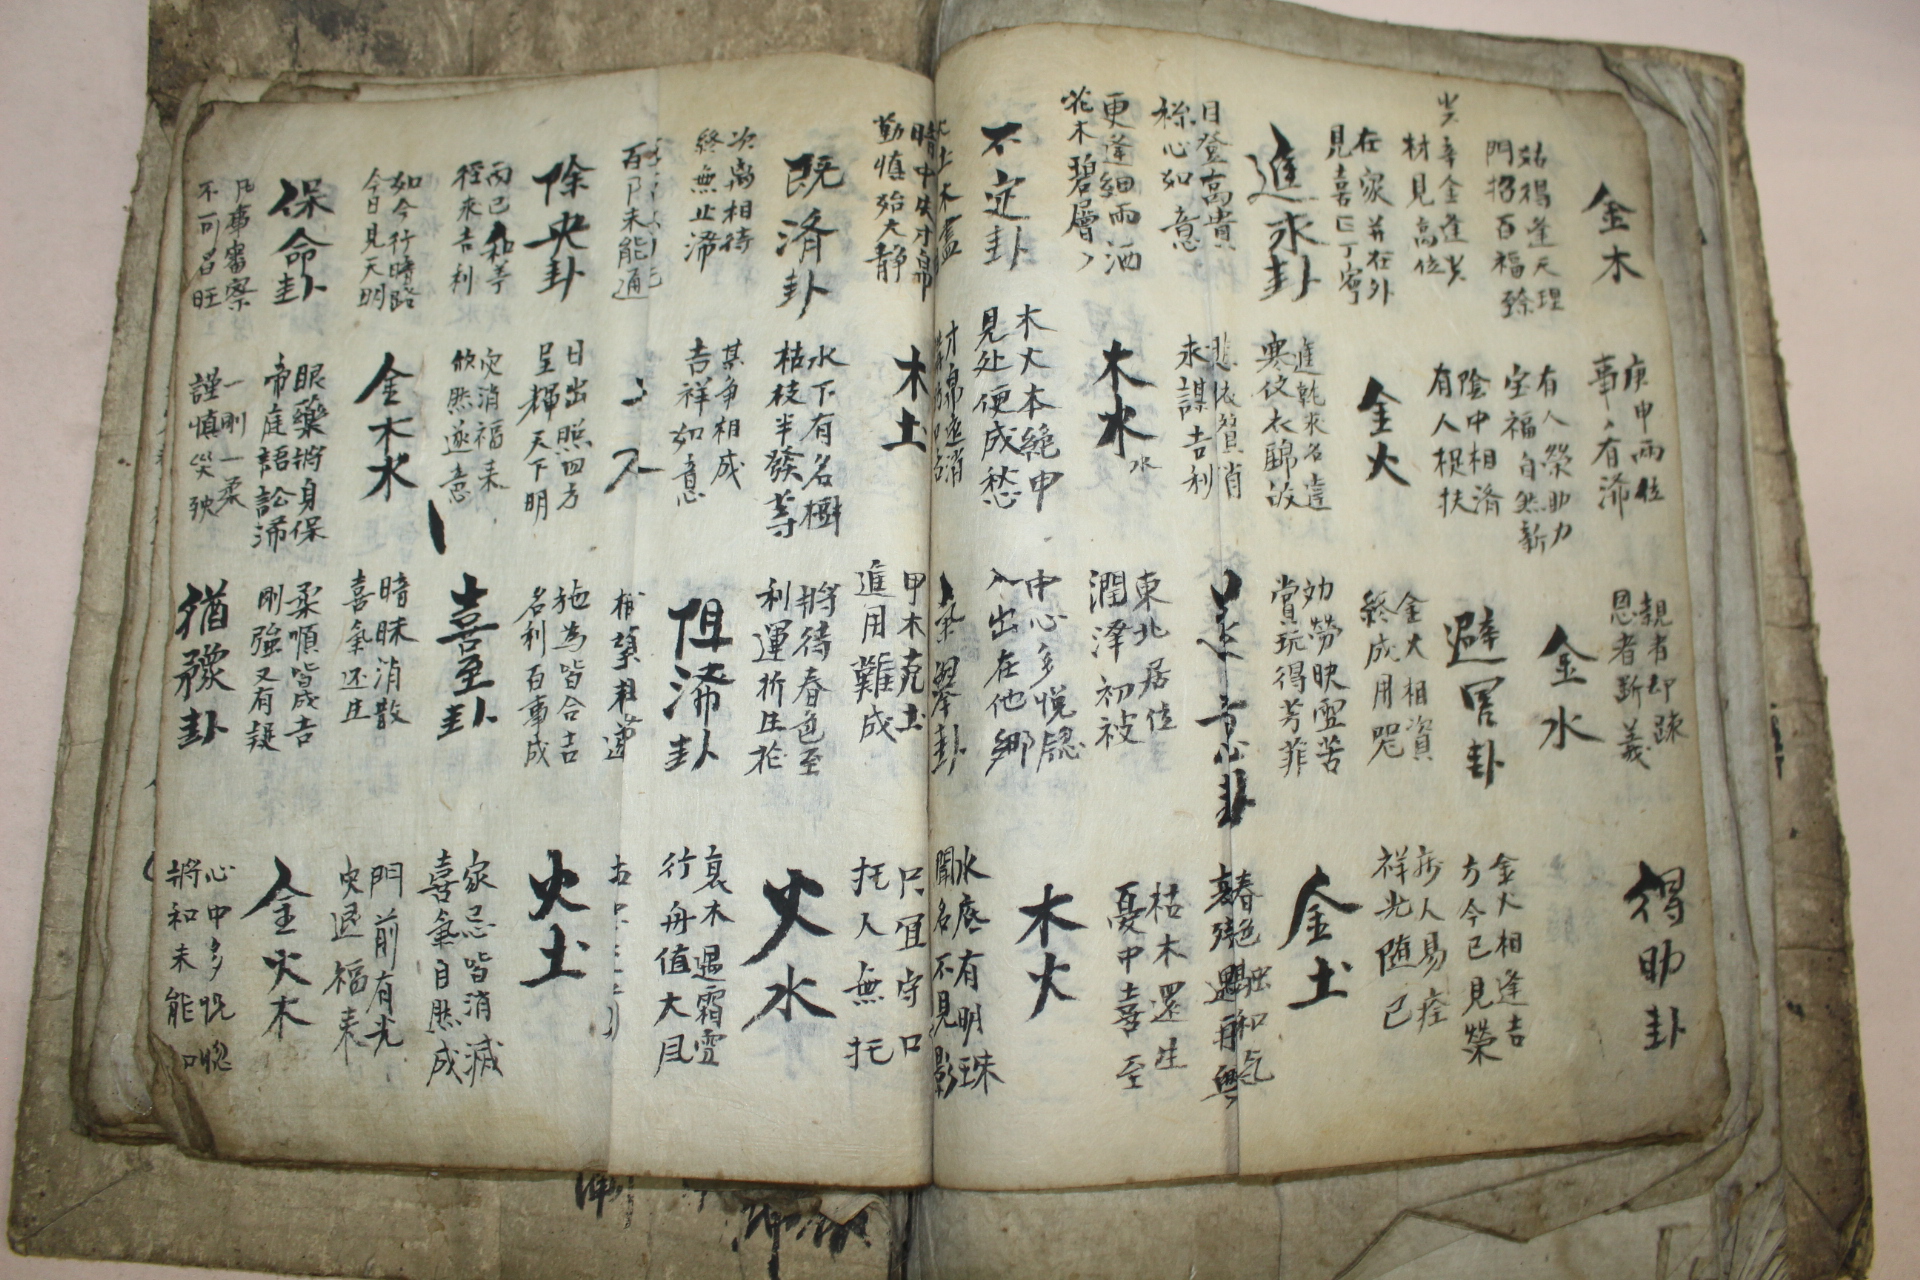 金木
庚申兩位
事〃有滯
親者却踈
恩者斷義
得助卦
始得逢天理
門招百福臻
有人榮助力
宝福自然新
金水
金火相逢吉
方今已見榮
辛金逢其
材見高位
陰中相済
有人捉扶
避害卦
人易痊
祥光随已
在家并在外
見喜巨丁寧
金火
金火相資
終成用咒
金土
進永卦
進乾求名違
効勞映雪苦
賞玩得芳菲
日登高貴
称心如意
求謀吉利
意卦
枯木還生
憂中喜至
更逢細雨洒
花木碧層〃
木水
東北居位
潤泽初被
木火
不定卦
木火本絶申
見处便成愁
中心多悦惚
入出在他鄉
水底有明珠
聞名不見影
暗中失才帛
勤慎殆大静
木土
甲木克土
進用難成
只宜守口
托人無托
既済卦
水下有名樹
枯枝半發等
將待春色至
利運折庄花
火水
次离相待
終無止滞
某争相成
吉祥如意
阻滞卦
衰木遇霜雪
行舟值大風
百門未能通
除央卦
日出照四方
呈輝天下明
施為皆合吉
名利百事成
火土
雨已和等
徑來吉利
灾消福来
欣然遂意
喜至卦
家忌皆消滅
喜氣自然成
如今行時路
今日見天明
金木水
暗昧消散
喜氣还庄
門前有光
央退福来
保命卦
眼藥將身保
帝庭語訟滞
柔順皆成吉
剛強又有疑
金火木
凡事審察
不可昌旺
一剛一柔
謹慎災殃
猶豫卦
心中多悦惚
將和未能和